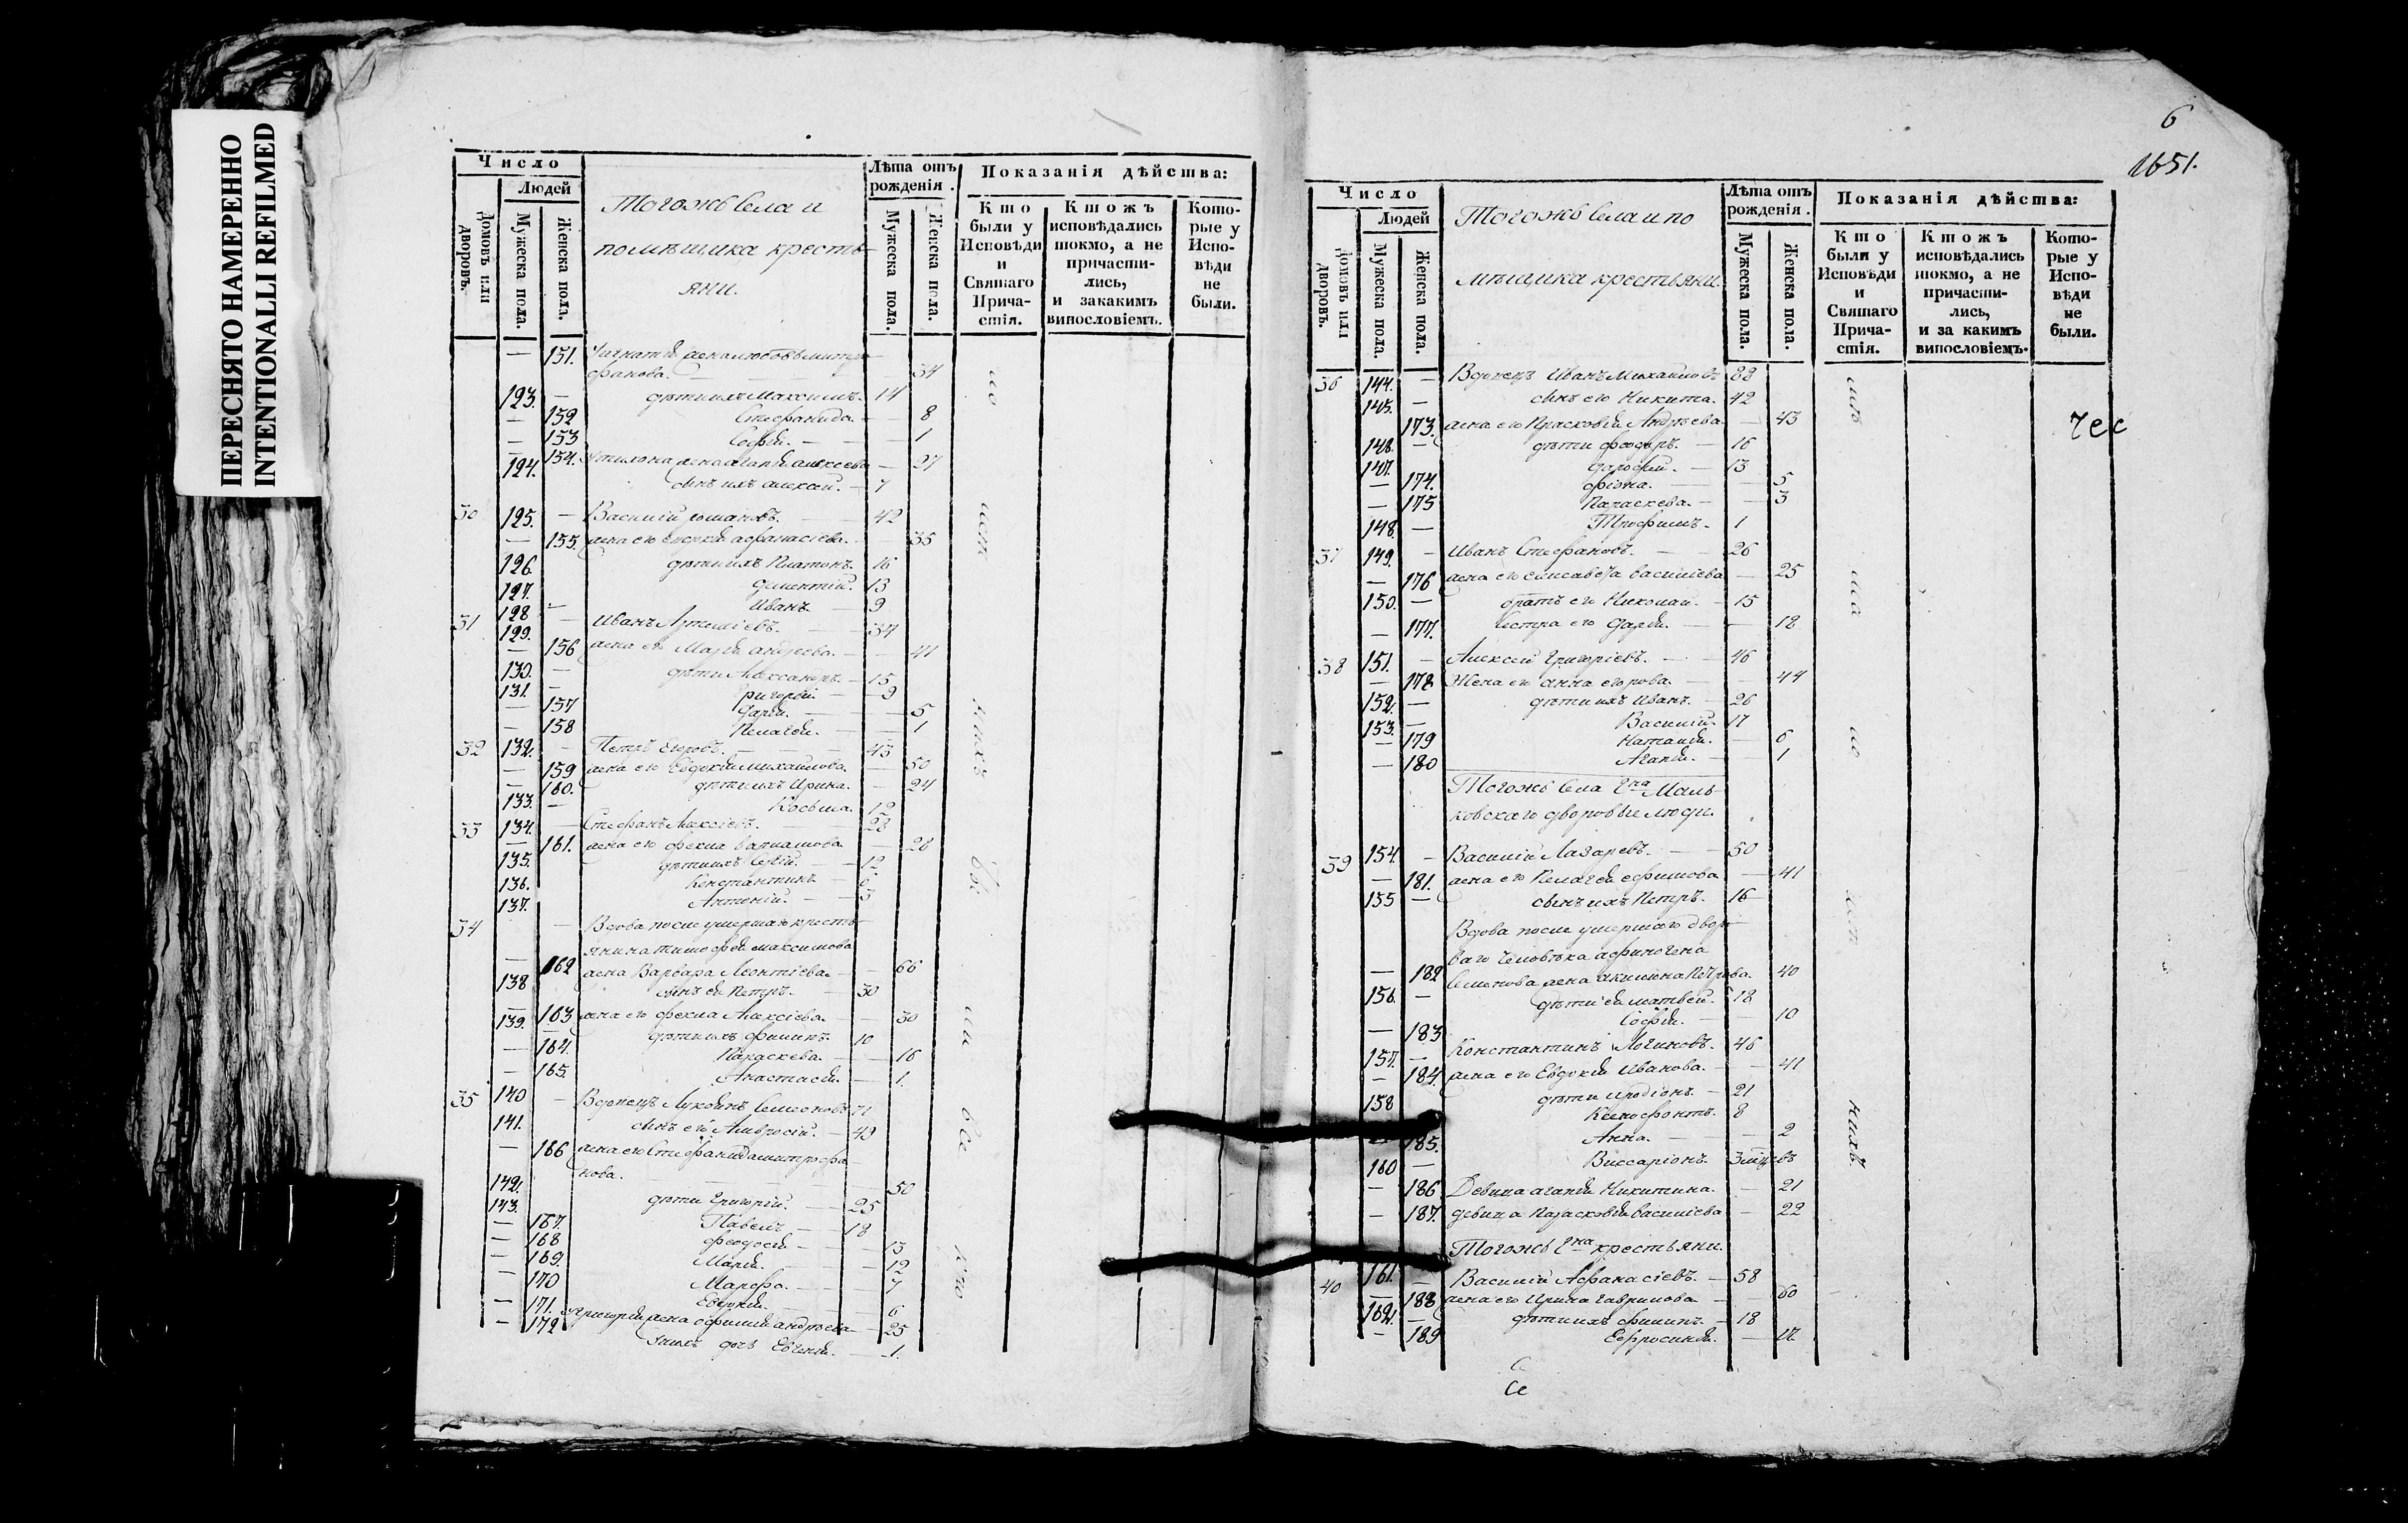 ПЕРЕСНЯТО НАМЕРЕННО
INTENTIONALLI REFILMED
Число
Людей
Домовъ или дворовъ.
Мужеска пола.
Женска пола.
Тогожъ села и
помѣщика кресть-
яни.
Лѣта отъ рожденія.
Мужеска пола.
Женска пола.
Показанія дѣйства:
Кто были у Исповѣди и Святаго Прича-стія.
Ктожъ исповѣдались токмо, а не причасти-лись, и закакимъ винословіемъ.
Кото-рые у Испо-вѣди не были.
151. жена любовь митро
фанова. — 34
123. — дѣти ихъ Максимъ. — 14
— 152 Стефанида. — 8
— 153 Софія. — 1
— 154. жена Агафія алексѣева — 27
124. сынъ ихъ алексѣй. — 7
30 125. — Василій романовъ. — 42
— 155. жена его афанасіева. — 35
126. дѣти ихъ Платонъ. 16
127. дементій. 13
128 — Иванъ. — 9
31 129. — Иванъ Артеміевъ. — 34
— 156 жена его Марія андреева. — 41
130. — дѣти Александръ. — 15
131. — григорій — 9
— 157 дарія. — 5
— 158 Пелагея. — 1
32 132. — Петръ Егоровъ. — 43
— 159 жена его Евдокія михаилова. — 50
— 160. дѣти ихъ Ирина. — 24
133. — Косьма. 12
33 134. — Стефанъ Алексіевъ. — 28
— 161. жена его фекла — 28
135. дѣти ихъ Сергій. — 12
136. Константинъ — 6
137. Антоній. — 3
34 — Вдова после умершаго кресть-
янина тимофея максимова
— 162 жена Варвара Леонтіева. — 66
138 сынъ ея Петръ. — 30
— 163 жена его фекла Алексіева. — 30
139. — дѣти ихъ филиппъ. 10
— 164. Параскева. — 16
— 165. Анастасія. — 1.
35 140 — Вдовецъ Семеоновъ 71
141. сынъ его Амвросій. — 49
— 166 жена его Стефанида митрофа-
нова. — 50
142. дѣти Григорій. — 25
143. Павелъ — 18
— 167. феодосія — 13
— 168 Марія. — 12
— 169. Марфа. — 7
— 170 Евдокія. — 6
— 171. григорія жена андреева — 25
— 172 у нихъ дочь Евгенія. — 1.
6
1651.
Число
Людей
Домовъ или дворовъ.
Мужеска пола.
Женска пола.
Тогожъ села и по
мѣщика крестьяни.
Лѣта отъ рожденія.
Мужеска пола.
Женска пола.
Показанія дѣйства:
Кто были у Исповѣди и Святаго Прича-стія.
Ктожъ исповѣдались токмо, а не причасти-лись, и за какимъ винословіемъ.
Кото-рые у Испо-вѣди не были.
36 144. — Вдовецъ Иванъ Михайловъ 88
145. — сынъ его Никита. 42
173. жена его Прасковія Андреева. — 43
146. — дѣти феодоръ. — 16
147. дорофей. — 13
— 174. 5
— 175 Параскева. — 3
148 — Трофимъ. 1
37 149. — Иванъ Стефановъ. — 26
— 176 жена его елисавета василіева — 25
150. — братъ его Николай. — 15
— 177. Сестра его Дарія. — 18
38 151. — Алексей Григоріевъ. — 46
— 178 Жена его анна егорова. — 44
152. — дѣти ихъ Иванъ. — 26
153. — Василій. 17
— 179 Наталія. — 6
— 180 Агафія. — 1
Тогожъ села г-на Маль-
ковскаго дворовые люди.
39 154. — Василій Лазаревъ. — 50
— 181. жена его Пелагея ефимова — 41
155 — сынъ ихъ Петръ. 16
Вдова после умершаго дворо-
ваго человѣка афиногена
— 182 Семенова жена акилина Петрова. 40
156. — дѣти ея матвей. 18
— 183 Софія. — 10
157. — Константинъ Логиновъ. 46
— 184. жена его Евдокія Иванова. — 41
158 дѣти иродіонъ. — 21
Ксенофонтъ. 8
185. Анна. — 2
160 — Виссаріонъ. 3 мцевъ
— 186 Девица агафія Никитина. — 21
— 187. девица Парасковія василіева — 22
Тогожъ г-на крестьяни.
40 161. — Василій Афанасіевъ. — 58
— 188 жена его Ирина гаврилова — 60
162. — дѣти ихъ филиппъ. — 18
— 189 Евфросинія. — 12
чес
Се